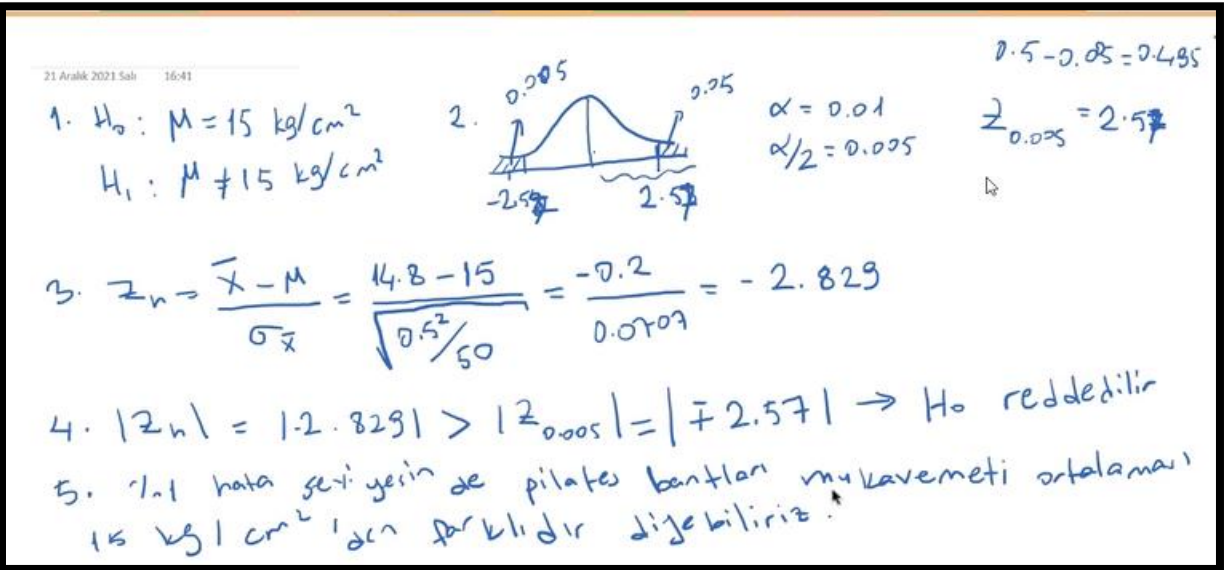 21 Aralık 2021 Salı 16:41
0.5-0.05=0.495
1. H₀: μ=15 kg/cm²
H₁: μ≠15 kg/cm²
2.
0.005
0.05
-2.57
2.57
α=0.01
α/2=0.005
Z₀.₀₀₅=2.57
3. Zₕ= (x̄-μ)/σx̄ = (14.8-15)/√(0.5²/50) = -0.2/0.0707 = -2.829
4. |Zₕ| = |-2.829| > |Z₀.₀₀₅|=|∓2.57| → H₀ reddedilir
5. %1 hata seviyesinde pilates bantları mukavemeti ortalaması
15 kg/cm²'den farklıdır diyebiliriz.